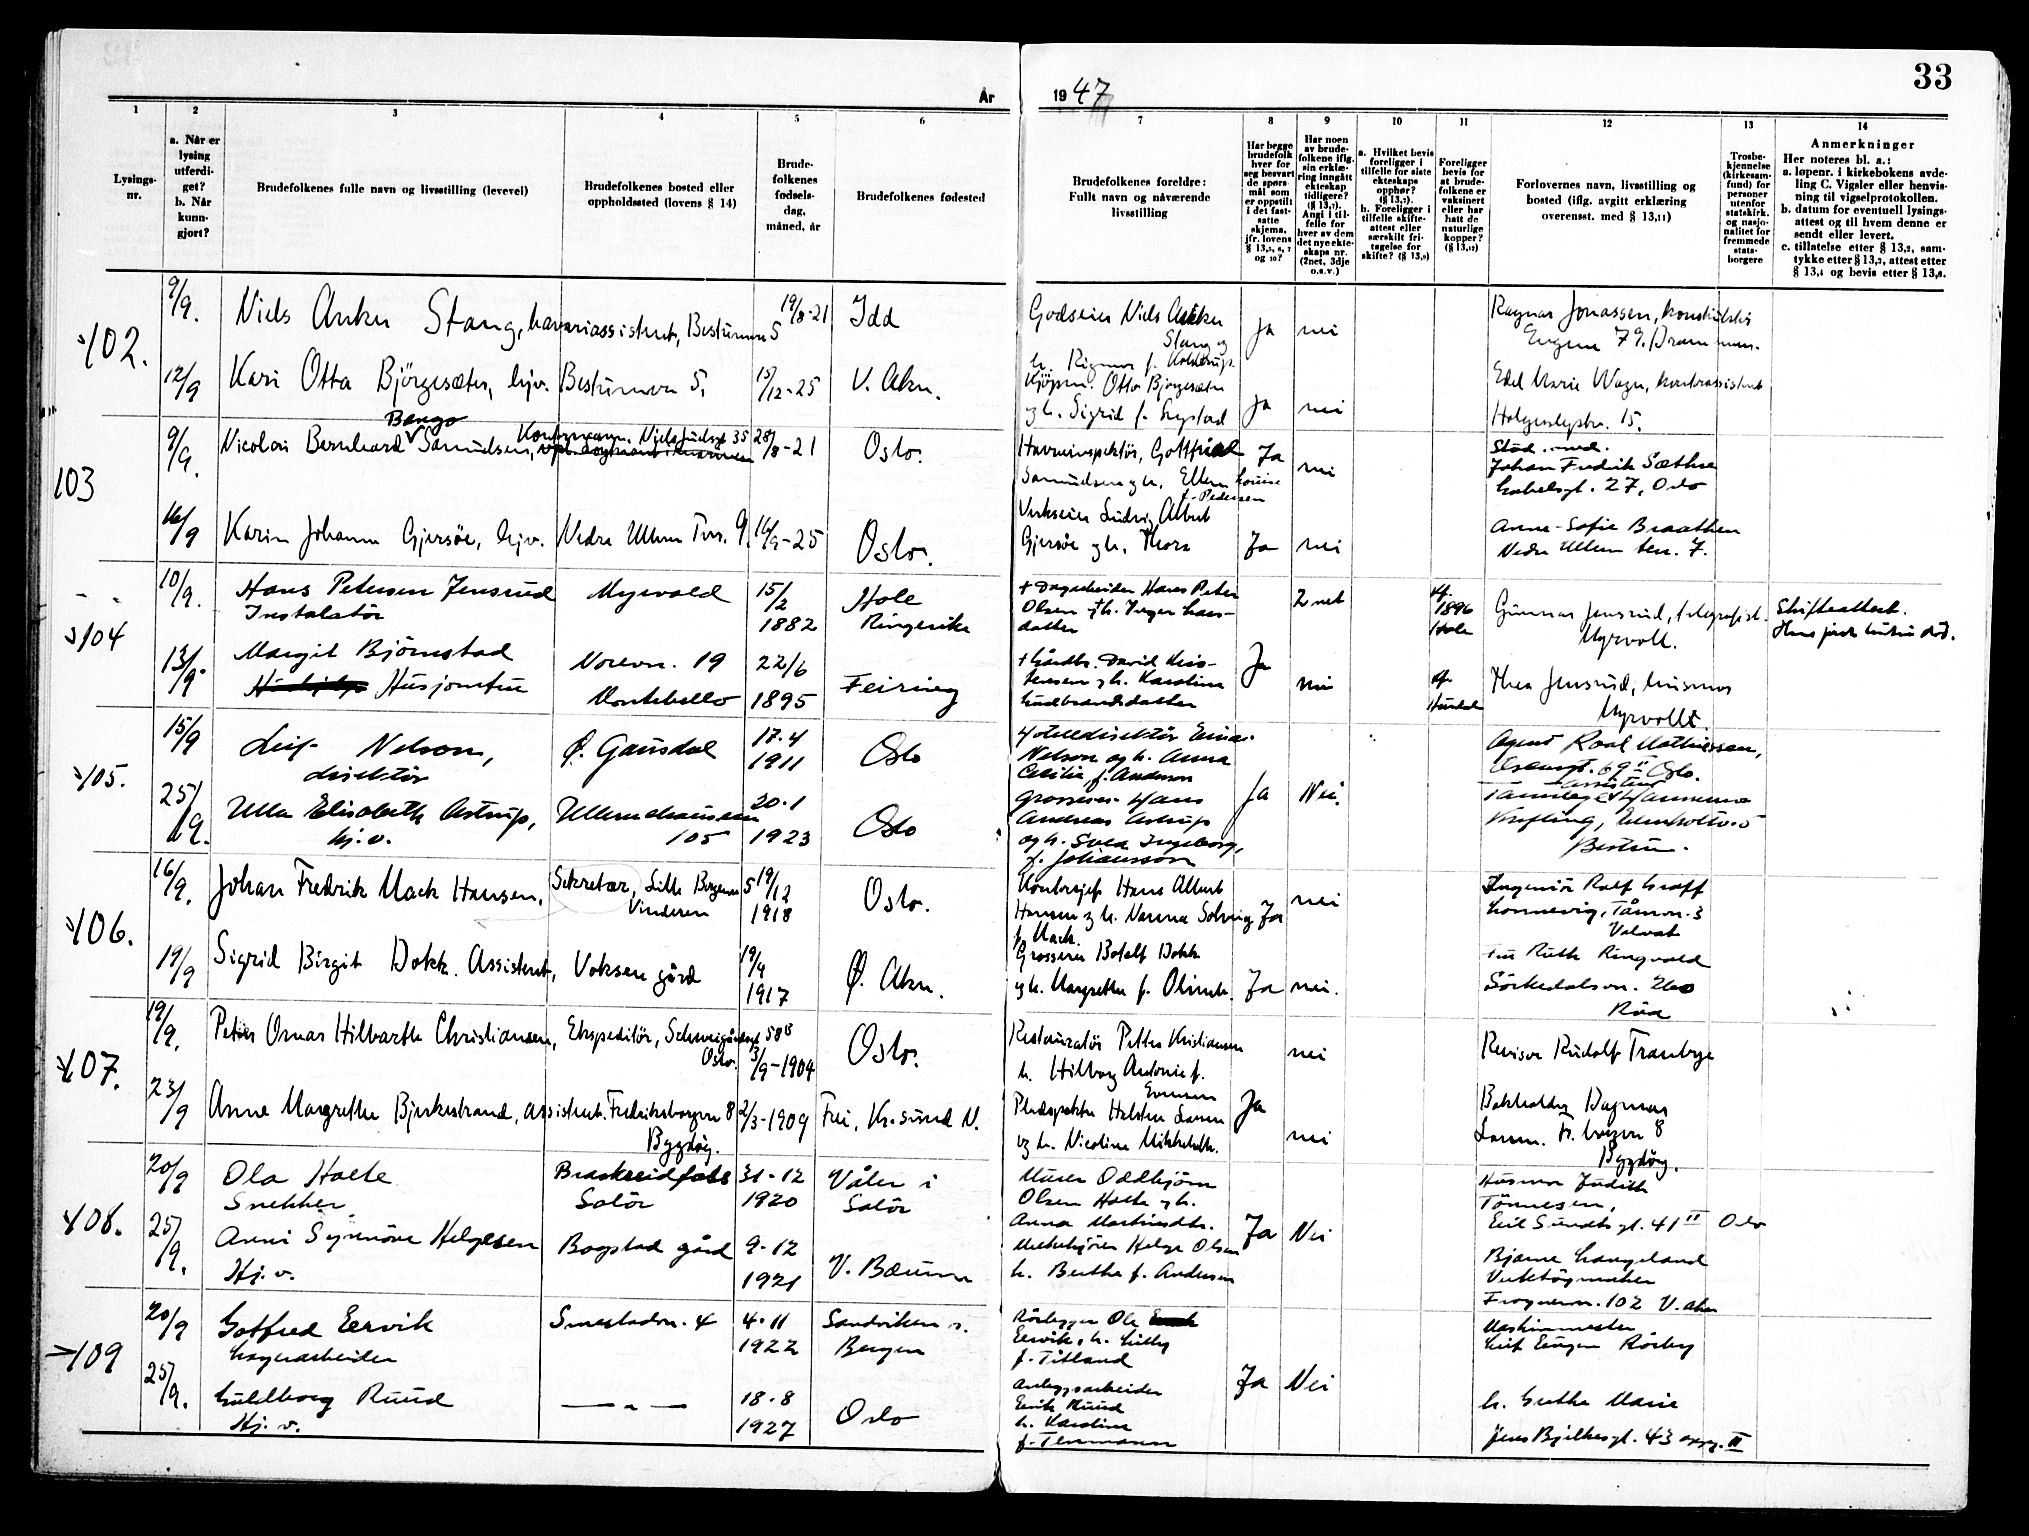 33
År 1947
1
2
3
4
5
6
7
8
9
10
11
12
13
14
Lysings-
nr.
a. Når er
lysing
utferdi-
get?
b. Når
kunn-
gjort?
Brudefolkenes fulle navn og livsstilling (levevei)
Brudefolkenes bosted eller
oppholdssted (lovens § 14)
Brude-
folkenes
fødsels-
dag,
måned, år
Brudefolkenes fødested
Brudefolkenes foreldre:
Fullt navn og nåværende
livsstilling
Har begge
brudefolk
hver for
seg besvart
de spørs-
mål som
er oppstilt
i det fast-
satte
skjema,
jfr. lovens
§ 13,5, 6, 7
og 10?
Har noen
av brude-
folkene iflg.
sin erklæ-
ring inngått
ekteskap
tidligere?
(§ 13,7).
Angi i til-
felle for
hver av dem
det nye ekte-
skaps nr.
(2net, 3dje
o.s.v.)
a. Hvilket bevis
foreligger i
tilfelle for siste
ekteskaps
opphør?
(§ 13,7).
b. Foreligger i
tilfelle skifte-
attest eller
særskilt fri-
tagelse for
skifte? (§ 13,9)
Foreligger
bevis for
at brude-
folkene er
vaksinert
eller har
hatt de
naturlige
kopper?
(§ 13,12)
Forlovernes navn, livsstilling og
bosted (iflg. avgitt erklæring
overensst. med § 13,11)
Trosbe-
kjennelse
(kirkesam-
fund) for
personer
utenfor
statskirk.
og nasjo-
nalitet for
fremmede
stats-
borgere
Anmerkninger
Her noteres bl. a.:
a. løpenr. i kirkebokens avde-
ling C. Vigsler eller henvis-
ning til vigselprotokollen.
b. datum for eventuell lysings-
attest og til hvem denne er
sendt eller levert.
c. tillatelse etter § 13,2, sam-
tykke etter § 13,3, attest etter
§ 13,4 og bevis etter § 13,8.
102.
9/9.
Niels Anker Stang, havariassistent, Bestumvn 5
19/8-21
Idd
Godseier Niels Anker
Stang og
h. Rigmor f. Kolderup.
Ja
nei
Ragnar Jonassen, kontorsjef
Engene 79. Drammen.
12/9
Kari Otta Björgesæter, hjv. Bestumvn 5,
15/12-25
V. Aker.
Kjøpm. Otto Bjørgesæter
og h. Sigrid f. Sugstad
Ja
nei
Edel Marie Wager, kontorassistent
Holgerslystvn. 15.
103
9/9.
Bengo
Nicolai Bernhard Samuelsen, Kontormann. Niels Juelsgt 35
28/8-21
Oslo.
Havneinspektør, Gottfried
Samuelsen og h. Ellen Louise
f. Pedersen
Ja
nei
Stud. med.
Johan Fredrik Sæthre
Gabelsgt. 27, Oslo
16/9
Karin Johanne Gjersøe, hjv. Nedre Ullern Terr. 9.
16/9-25
Oslo.
Verkseier Ludvig Albert
Gjersøe og h. Thora
Ja
nei
Anne-Sofie Braathen
Nedre Ullern terr. 7.
104
10/9.
Hans Petersen Jensrud
Instalatør
Myrvold
15/2
1882
Hole
Ringerike
+ Dagarbeider Hans Peter
Olsen + h. Inger Lars-
datter
2net
1896
Hole
Gunnar Jensrud, telegrafist.
Myrvoll.
Skifteattest.
13/9
Margit Björnstad
Husjomfru
Norevn. 19
Montebello
22/6
1895
Feiring
+ Gårdbr. David Kris-
tensen og h. Karoline
Gudbrandsdatter
Ja
nei
Hurdal
Thea Jensrud, husmor
Myrvoll.
105.
15/9
Leif Nelson,
direktør
Ø. Gausdal
17.4
1911
Oslo
Hotelldirektør Einar
Nelson og h. Anna
Cecilia f. Anderson
Ja
Nei.
Agent Roal Mathiessen,
69 II Oslo.
25/9.
Ulla Elisabeth Astrup,
hj.v.
Ullernchausseen
105
20.1
1923
Oslo
Grosserer Hans
Andreas Astrup
og h. Svea Ingeborg,
f. Johansson
assistent
Tannlege Hansine
Bestun.
106.
16/9.
Johan Fredrik Mack Hansen, Sekretær, Lille Borgenvn 5
Vinderen
19/12
1918
Oslo.
Kontorsjef Hans Albert
Hansen og h. Nanna Solveig
f. Mack.
Ja
nei
Ingeniør Rolf Graff
Lonnevig, Tåsenvn. 3
19/9
Sigrid Birgit Dokk. Assistent, Voksen gård
19/4
1917
Ø. Aker.
Grosserer Botolf Dokk
og h. Margrethe f. Olimb.
Ja
nei.
Fru Ruth Ringvold
Sørkedalsvn. 260
Røa
107.
19/9.
Petter Ornas Hilbarth Christiansen, Ekspeditør, Schweigårdsgt 58 B
Oslo.
3/9-1904
Oslo.
Restauratør Petter Kristiansen
h. Hilborg Antonie f.
Evensen
nei
Revisor Rudolf Tranbye
23/9
Anne Margrethe Bjerkestrand, assistent. Fredriksborgvn 8
Bygdöy.
2/3-1909
Frei, Kr.sund N.
Ja
og h. Nicoline Mikkelsdtr.
nei
Bokholder Dagmar
8
Bygdöy.
108.
20/9
Ola Holte
Snekker
Braskereidfoss
Solör
31.12
1920
Våler i
Solör
Murer Oddbjørn
Olsen Holte og h.
Anna Mathisdtr.
Ja
Nei
Husmor Judith
Tönnesen,
Eil. Sundts gt. 41 II Oslo
25/9.
Anni Synnöve Helgesen
Hj.v.
Bogstad gård
9.12
1921
V. Bærum
Melkekjører Helge Olsen
h. Berthe f. Andersen
Bjarne Langeland
Verktøymaker
Frognervn. 102 V. aker
109
20/9
Gotfred Eervik
Lagerarbeider
Smestadvn. 4
4.11
1922
Sandviken v.
Bergen
Rørlegger Ole
Eervik, h. Lilly
f. Titland
Ja
Nei
Maskinmester
Leif Eugen Rösby
25/9.
Guldborg Ruud
Hj.v.
— " —
18.8
1927
Oslo
Anleggsarbeider
Erik Ruud
h. Karoline
f. Thinmann
h. Grethe Marie
Jens Bjelkesgt. 43 oppg. II